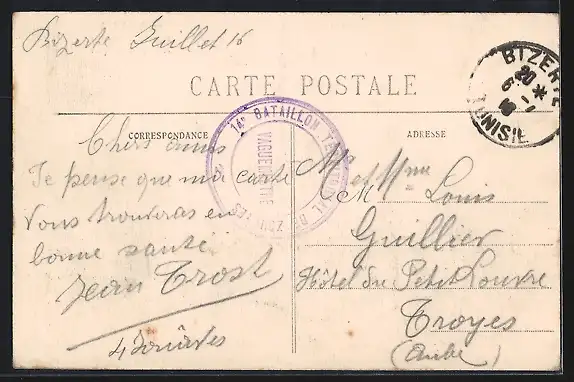 Bizerte Juillet 16
CARTE POSTALE
BIZERTE
20 *
6 -
16
TUNISIE
14e BATAILLON TERRITORIAL DE ZOUAVES
VAGUEMESTRE
CORRESPONDANCE
ADRESSE
Chers amis
Je pense que ma carte
Vous trouveras en
bonne santé
Jean Trost
4 Zouaves
Mr et Mme
M Louis
Guillier
Hôtel du Petit Louvre
Troyes
(Aube)